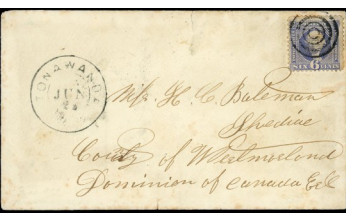 TONAWANDA
JUN
SIX 6 CENTS
H. C. Bateman
Shediac
County of Westmoreland
Dominion of Canada